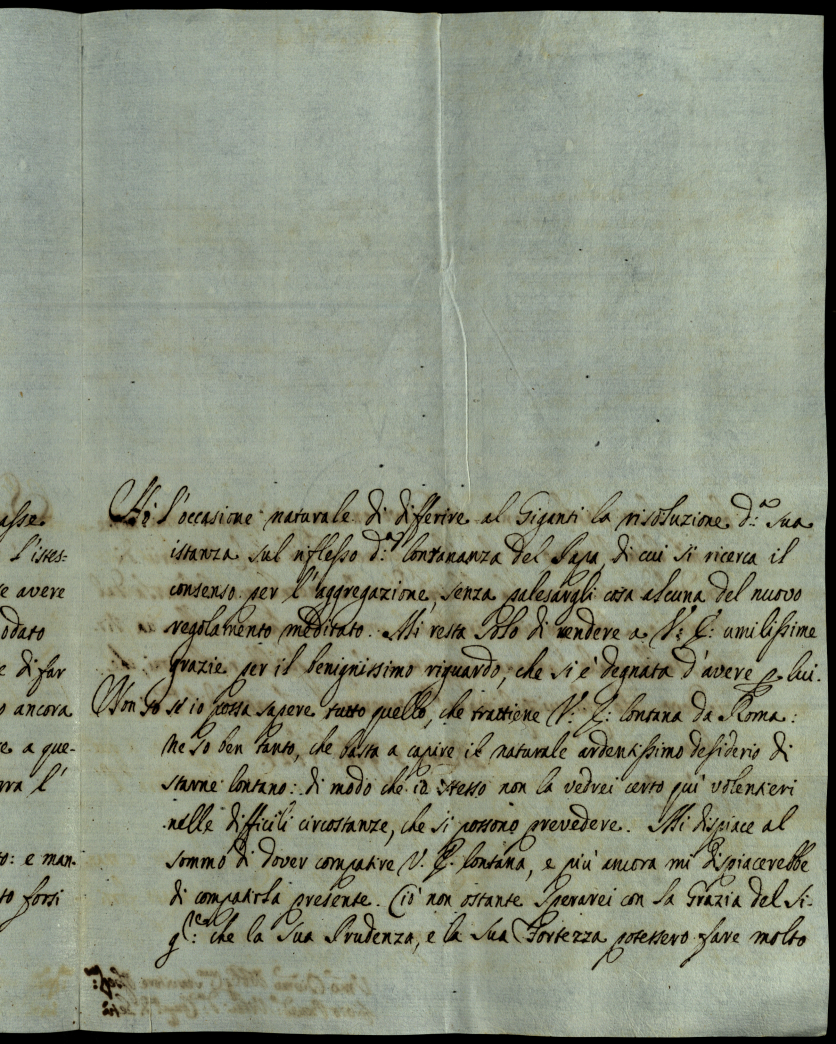 asse
l'istes:
e avere
odato
e di far
o ancora
ce a que-
rra l'
to: e man-
to forsi
Hò l'occasione naturale di differire al Giganti la risoluzione d:ª sua
istanza sul riflesso d:ª lontananza del Papa, di cui si ricerca il
consenso per l'aggregazione, senza palesargli cosa alcuna del nuovo
regolamento meditato. Mi resta solo di rendere a V: E: umilissime
grazie per il benignissimo riguardo, che si è degnata d'avere p lui.
Non so s'io possa sapere tutto quello, che trattiene V: E: lontana da Roma:
ne so ben tanto, che basta a capire il naturale ardentissimo desiderio di
starne lontano: di modo che io stesso non la vedrei certo più volentieri
nelle difficili circostanze, che si possono prevedere. Mi dispiace al
sommo di dover compatire V. E. lontana, e più ancora mi dispiacerebbe
di compatirla presente. Ciò non ostante sperarei con la Grazia del Si-
g:re che la Sua Prudenza, e la Sua Fortezza potessero fare molto